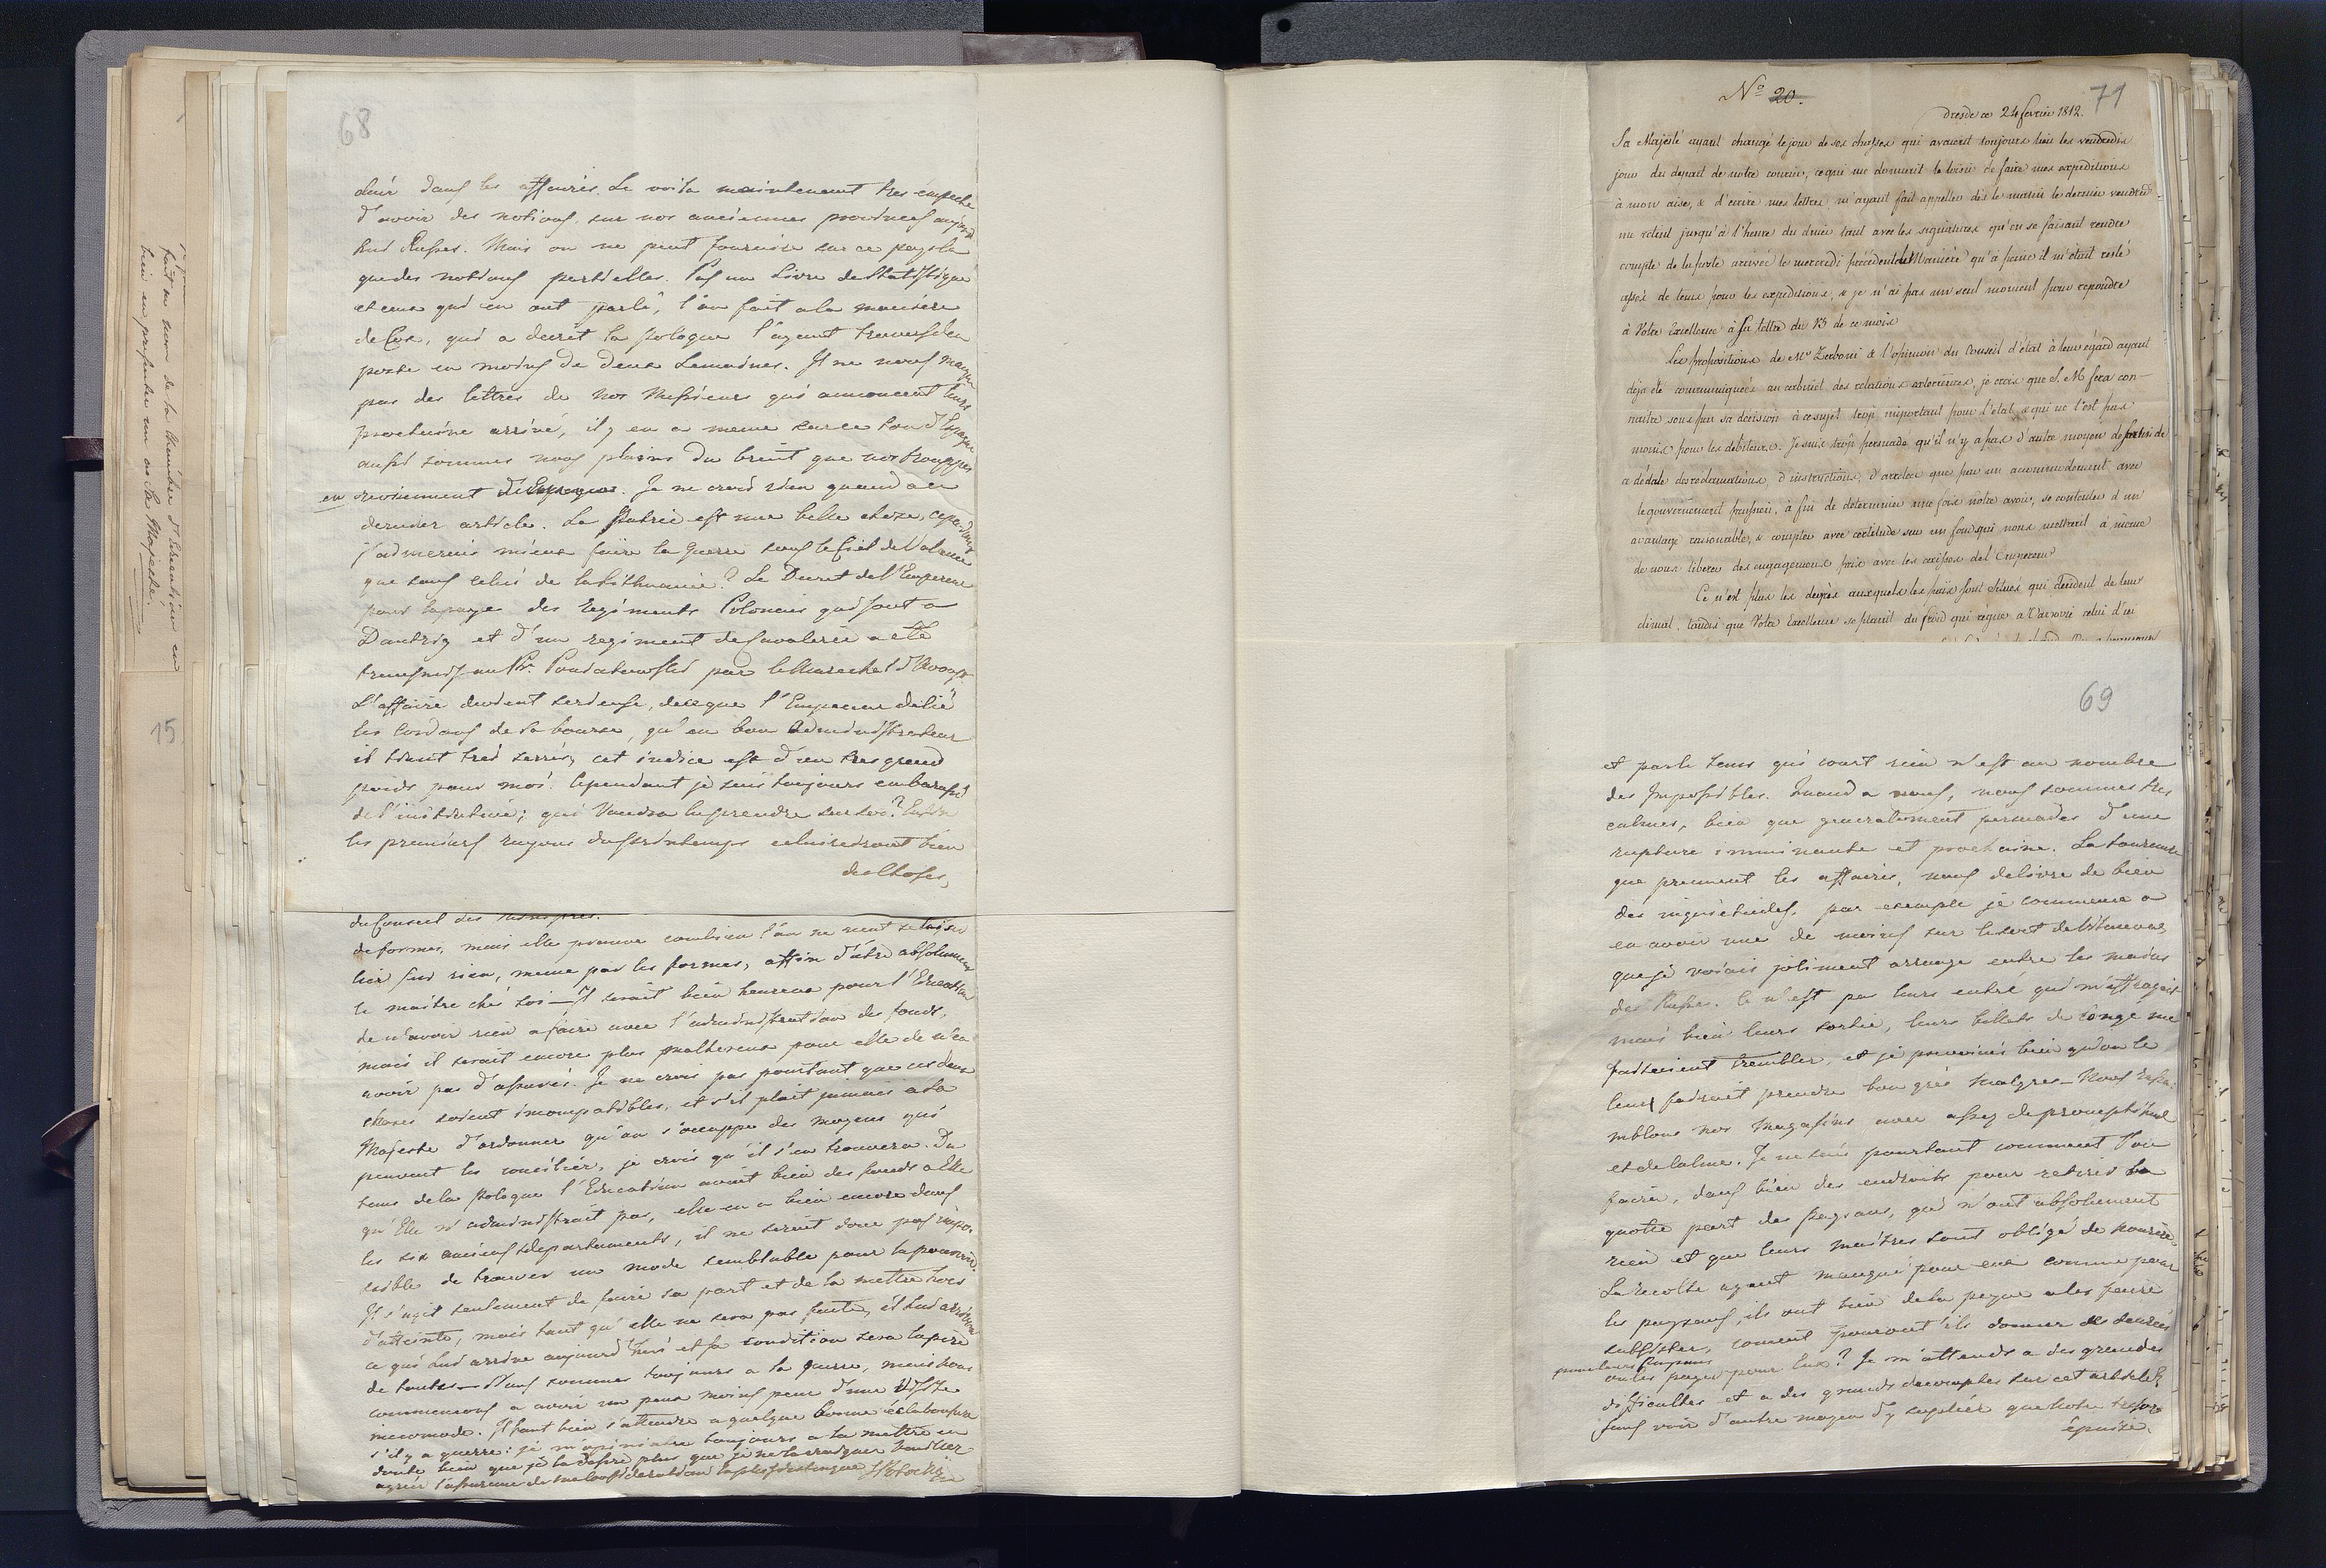 68
clair dans les affaires. Le voila maintenant tres empeché
d'avoir des notions, sur nos anciennes provinces aujourd
hui Russes. Mais on ne peut fournire sur ce pays la
que des notions partielles. Pas un Livre de Statistique
et ceux qui en ont parlé, l'on fait a la maniere
de Coxe, qui a decrit la pologne l'ayant traversée en
poste en moins de deux Semaines. Il ne nous manque
pas des lettres de nos Messieurs qui annoncent leurs
prochaine arrivé, il y en a meme sur le ton d'Espagne
aussi sommes nous pleins du bruit que nos trouppes
en reviennent. Je ne crois rien quand a ce
dernier article. La Patrie est une belle chose, cependant
j'aimerais mieux faire la Guerre sous le Ciel de Valence
que sous celui de la Lithuanie? Le Decret de l'Empereur
pour la paye des Regiments Polonais qui sont a
Dantzig et d'un regiment de Cavalerie a été
transmis au Pr. Poniatowski par le Marechal d'Avoust
L'affaire devient serieuse, des que l'Empereur delié
les Cordons de sa bourse, qu'en bon Administrateur
il tient tres serrés, cet indice est d'un tres grand
poids pour moi. Cependant je suis toujours embarassé
de l'initiative; qui voudra la prendre sur soi? Enfin
les premiers rayons du printemps eclairciront bien
des Choses,
du Conseil des Ministres.
de formes, mais elle prouve combien l'on ne veut se laisser
lier sur rien, meme par les formes, affin d'être absolument
le maitre ché soi — Il serait bien heureux pour l'Education
de n'avoir rien a faire avec l'administration des fonds,
mais il serait encore plus malheureux pour elle de n'en
avoir pas d'assurés. Je ne crois pas pourtant que ces deux
choses soient incompatibles, et s'il plait jamais a Sa
Majesté d'ordonner qu'on s'occuppe des moyens qui
peuvent les concilier, je crois qu'il s'en trouvera. Du
tems de la Pologne l'Education avait bien des fonds a Elle
qu'Elle n'administrait pas, elle en a bien encore dans
les six anciens departements, il ne serait donc pas impos
sible de trouver un mode semblable pour la pourvoir.
Il s'agit seulement de faire sa part et de la mettre hors
d'atteinte, mais tant qu'elle ne sera pas faite, il lui arrivera
ce qui lui arrive aujourd'hui et sa condition sera la pire
de toutes — Nous sommes toujours a la guerre, mais nous
commencons a avoir un peu moins peur d'une Visite
incommode. Il faut bien s'attendre a quelque bonne éclaboussure
s'il y a guerre: je m'opiniatre toujours a la mettre en
doute bien que je la desire plus que je ne la craigne Veuillez
agréer l'assurance de ma Consideration la plus distinguée SPotocki
fait au nom de la Chambre d'Education en
bien en presenter un as Sa Majesté.
15
No 20.
71
Dresde ce 24 fevrier 1812.
Sa Majesté ayant changé le jour de ses chasses qui avaient toujours lieu les vendredis
jour du depart de notre courier, ce qui me donnait le loisir de faire mes expeditions
à mon aise, & d'ecrire mes lettres, m'ayant fait appeller dès le matin le dernier vendredi
me retint jusqu'à l'heure du diner tant avec les signatures qu'en se faisant rendre
compte de la poste arrivée le mercredi précédent de Maniere qu'à peine il m'etait resté
assés de tems pour les expeditions, & je n'ai pas un seul moment pour repondre
à Votre Excellence à Sa lettre du 13 de ce mois
Les propositions de Mr Zerboni & l'opinion du Conseil d'état à leur égard ayant
déja été communiquées au cabinet des relations exterieures, je crois que S. M. fera con-
naitre sous peu sa decision à ce sujet trop important pour l'etat, & qui ne l'est pas
moins pour les debiteurs. Je suis trop persuadé qu'il n'y a pas d'autre moyen de sortir de
ce dédale de reclamations, d'instructions, d'arrètes que par un accommodement avec
le gouvernement prussien, à fin de determiner une fois notre avoir, se contenter d'un
avantage raisonable, & compter avec certitude sur un fond qui nous mettrait à même
de nous liberer des engagemens pris avec les caisses de l'Empereur
Ce n'est plus les degrès auxquels les païs sont situés qui decident de leur
climat, tandis que Votre Excellence se plaint du froid qui règne a Varsovie celui d'ici
69
et par le tems qui court rien n'est au nombre
des Impossibles. Quand a nous, nous sommes tres
calmes, bien que generalement persuadés d'une
rupture imminante et prochaine. La tournure
que prennent les affaires, nous delivre de bien
des inquietudes, par exemple je commence a
en avoir une de moins sur le sort de
que je voiais joliment arrangé entre les mains
des Russes. Ce n'est pas leurs entré qui m'effrayait
mais bien leurs sortie, leurs billets de Congé me
faisaient trembler, et je prevoiais bien qu'on le
leur faisait prendre bon grés malgres — Nous rassem
mblons nos Magasins avec assez de promptitude
et de calme. Je ne sais pourtant comment l'on
faira, dans bien des endroits pour retirer la
quotte part des paysans, qui n'ont absolument
rien et que leurs maitres sont obligé de nourire.
La recolte ayant manqué pour eux comme pour
les paysans, ils ont bien de la peyne a les faire
subsister, coment pouront'ils donner des denrées
pour leurs Paysans
ou les payer pour Eux? Je m'attends a des grandes
difficultes et a des grands decomptes sur cet article
sans voir d'autre moyen d'y supléer que notre tresor
épuisé.